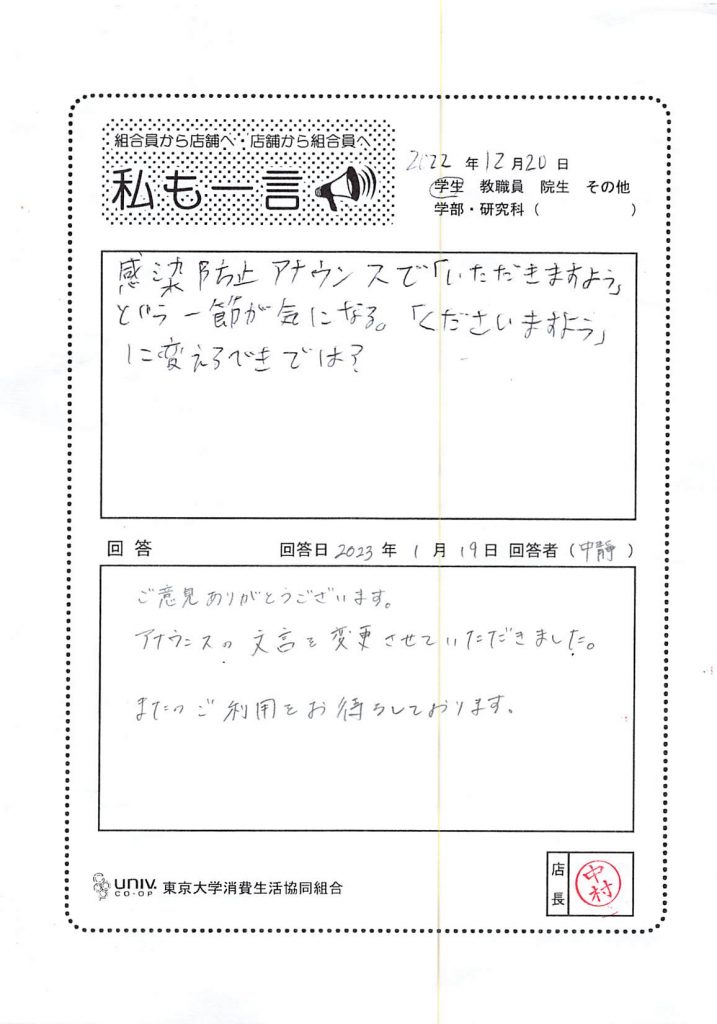 組合員から店舗へ・店舗から組合員へ
私も一言
2022 年 12 月 20 日
学生 教職員 院生 その他
学部・研究科( )
感染防止アナウンスで「いただきますよう」
という一節が気になる。「くださいますよう」
に変えるべきでは?
回答 回答日 2023 年 1 月 19 日 回答者(中静)
ご意見ありがとうございます。
アナウンスの文言を変更させていただきました。
またのご利用をお待ちしております。
UNIV. CO-OP 東京大学消費生活協同組合
店長 中村